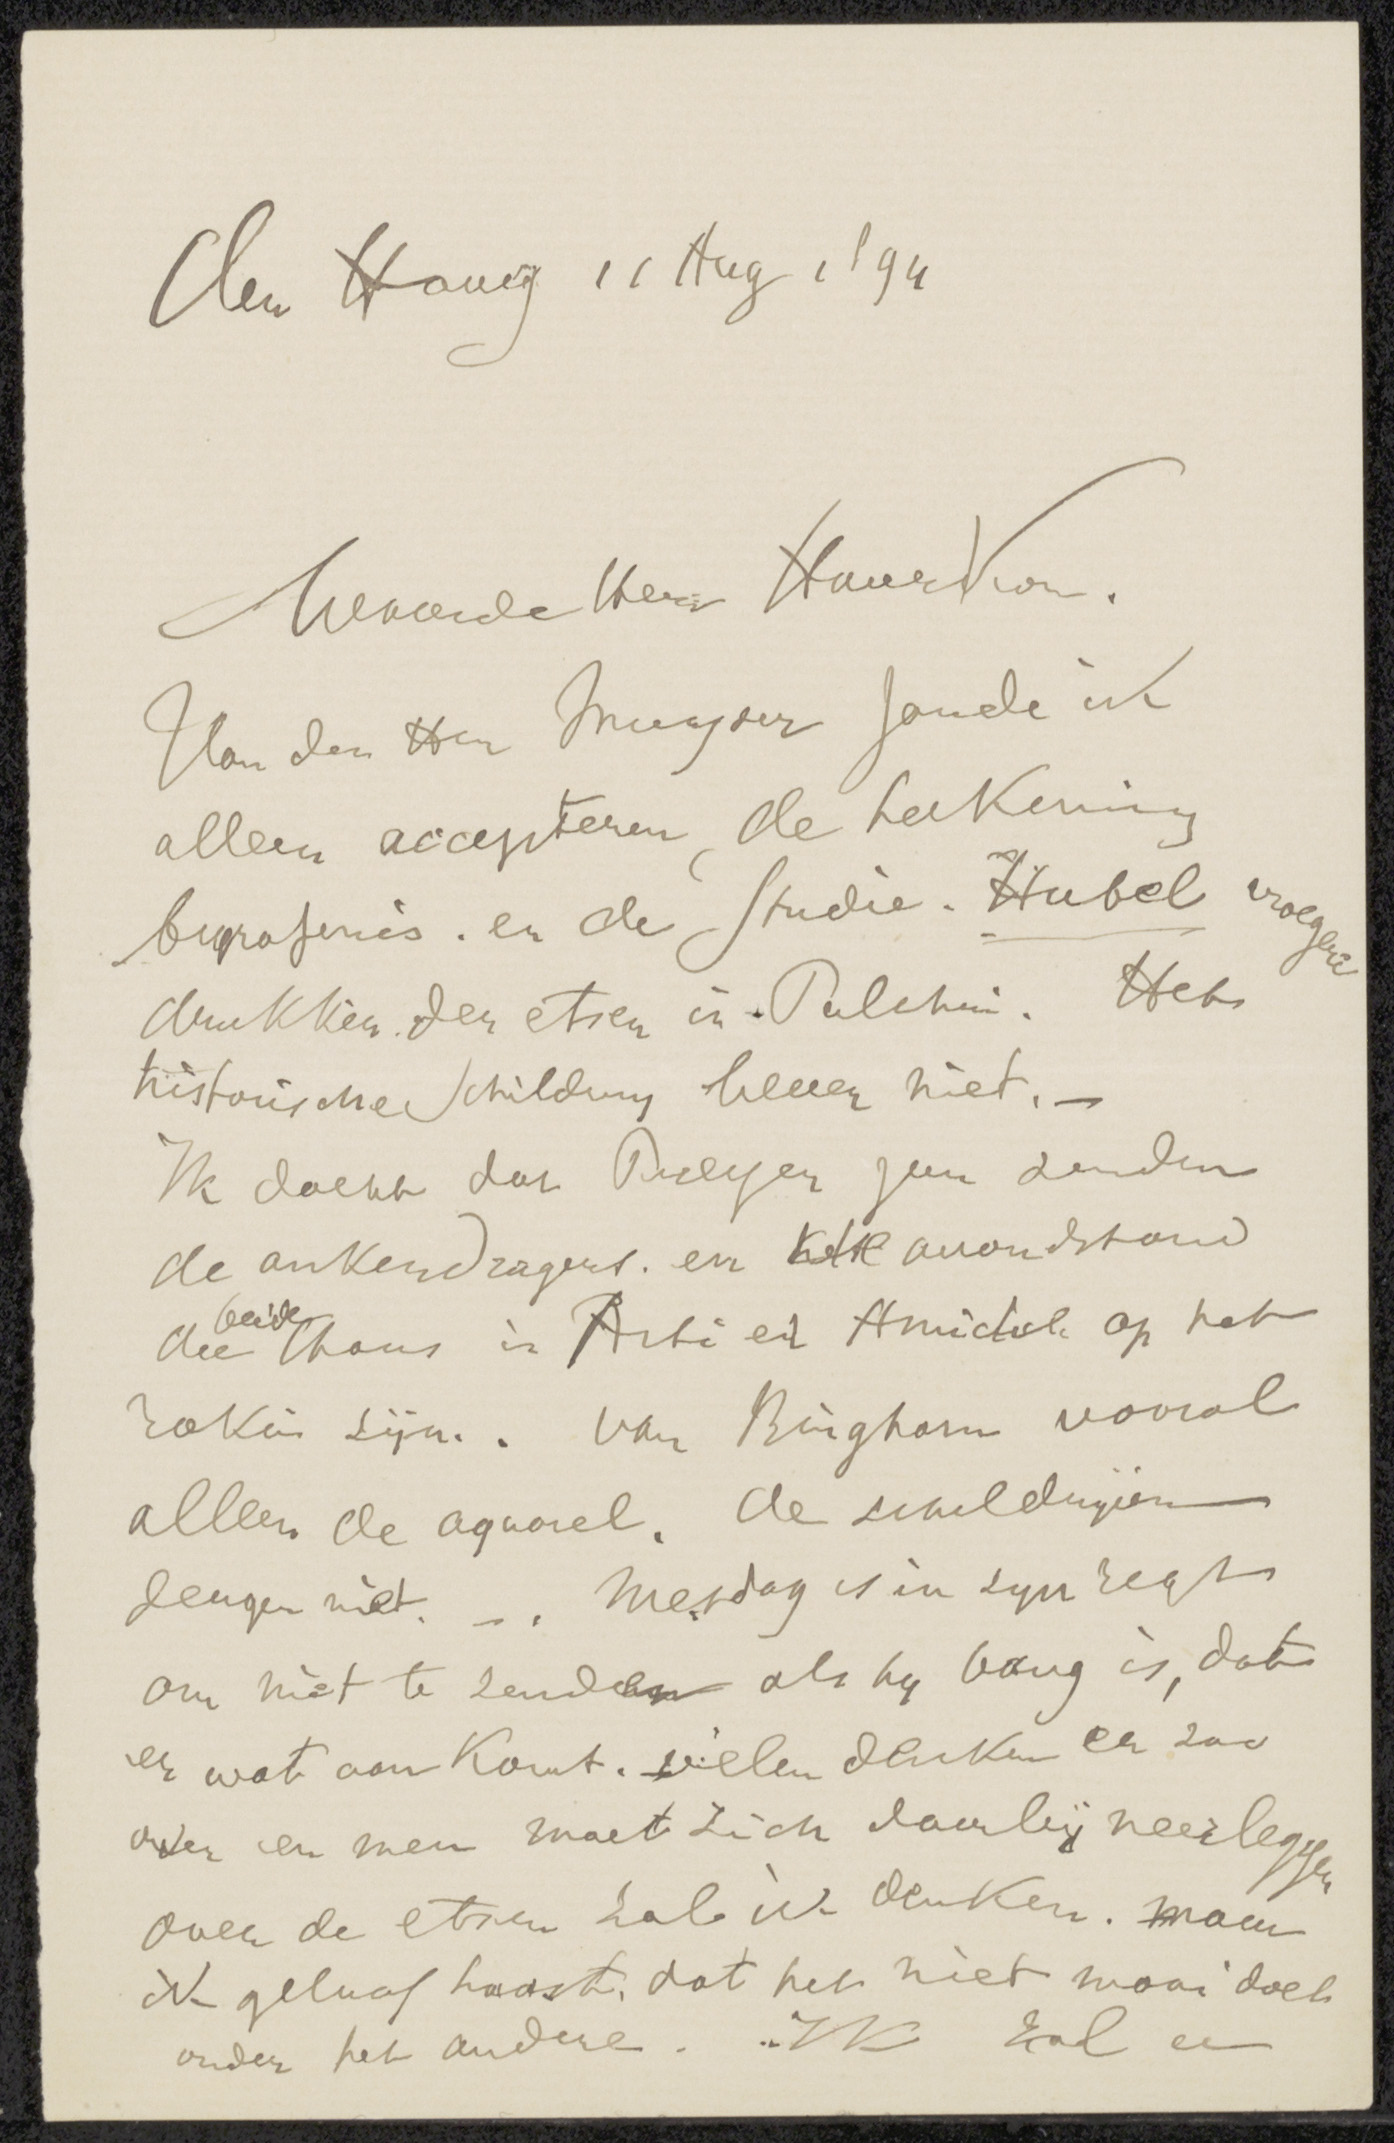 Den Haag 11 Aug 1894
Waarde Heer Haverkorn.
Van den Heer zoude ik
alleen accepteren, de teekening
begrafenis. en de Studie. vroegere
drukken der etsen in Pulchri. Het
historische schildery liever niet. _
Ik dacht dat zou zenden
de ankerdragers. en avondstond
die beide thans in Arti et Amicitiae op het
rokin zijn.. van Bingham vooral
alleen de aquarel. de schilderijen
deugen niet. _. Mesdag is in zyn regt
om niet te zenden als hy bang is, dat
er wat aan komt. vielen denken er zoo
over en men moet zich daarbij neerleggen
over de etsen zal ik denken. maar
ik geloof haast, dat het niet mooi doet
onder het andere. Ik zal er